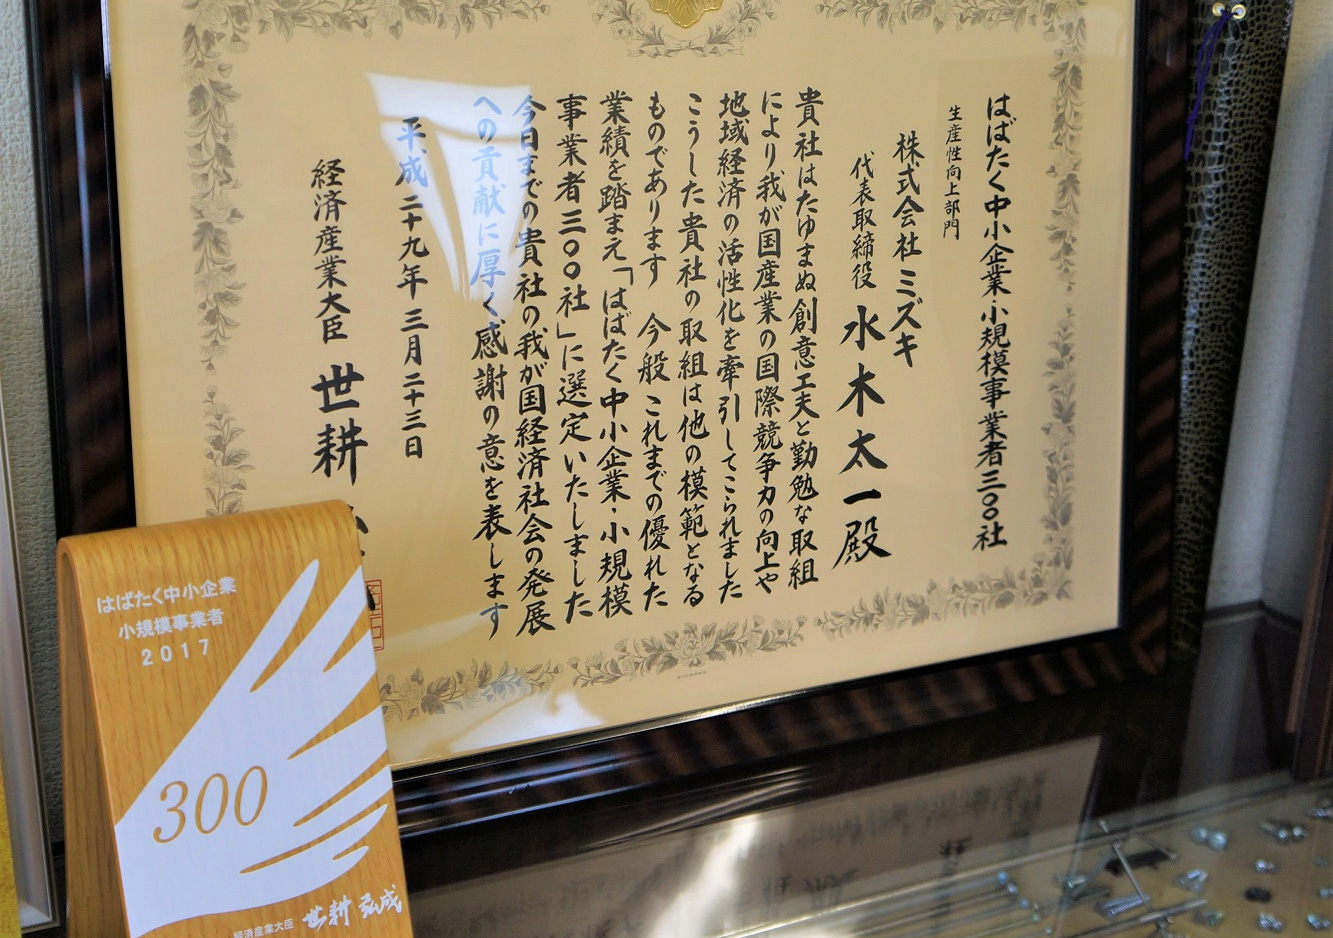 はばたく中小企業・小規模事業者三〇〇社
生産性向上部門
株式会社ミズキ
代表取締役 水木太一殿
貴社はたゆまぬ創意工夫と勤勉な取組
により我が国産業の国際競争力の向上や
地域経済の活性化を牽引してこられました
こうした貴社の取組は他の模範となる
ものであります 今般これまでの優れた
業績を踏まえ「はばたく中小企業・小規模
事業者三〇〇社」に選定いたしました
今日までの貴社の我が国経済社会の発展
への貢献に厚く感謝の意を表します
平成二十九年三月二十三日
経済産業大臣 世耕
はばたく中小企業
小規模事業者
2017
300
経済産業大臣 世耕弘成